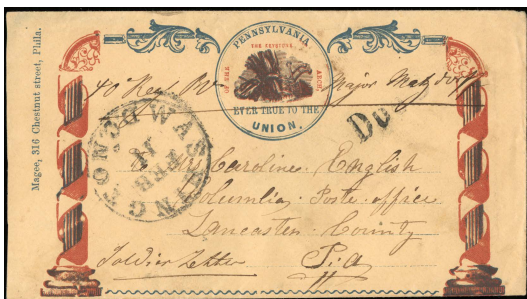 Magee, 316 Chestnut street, Phila.
PENNSYLVANIA
THE KEYSTONE
OF THE
ARCH
EVER TRUE TO THE
UNION.
40 Reg. Major
WASHINGTON
FEB
Due
Mrs Caroline English
Columbia Poste office
Lancaster County
Soldier Letter P.a